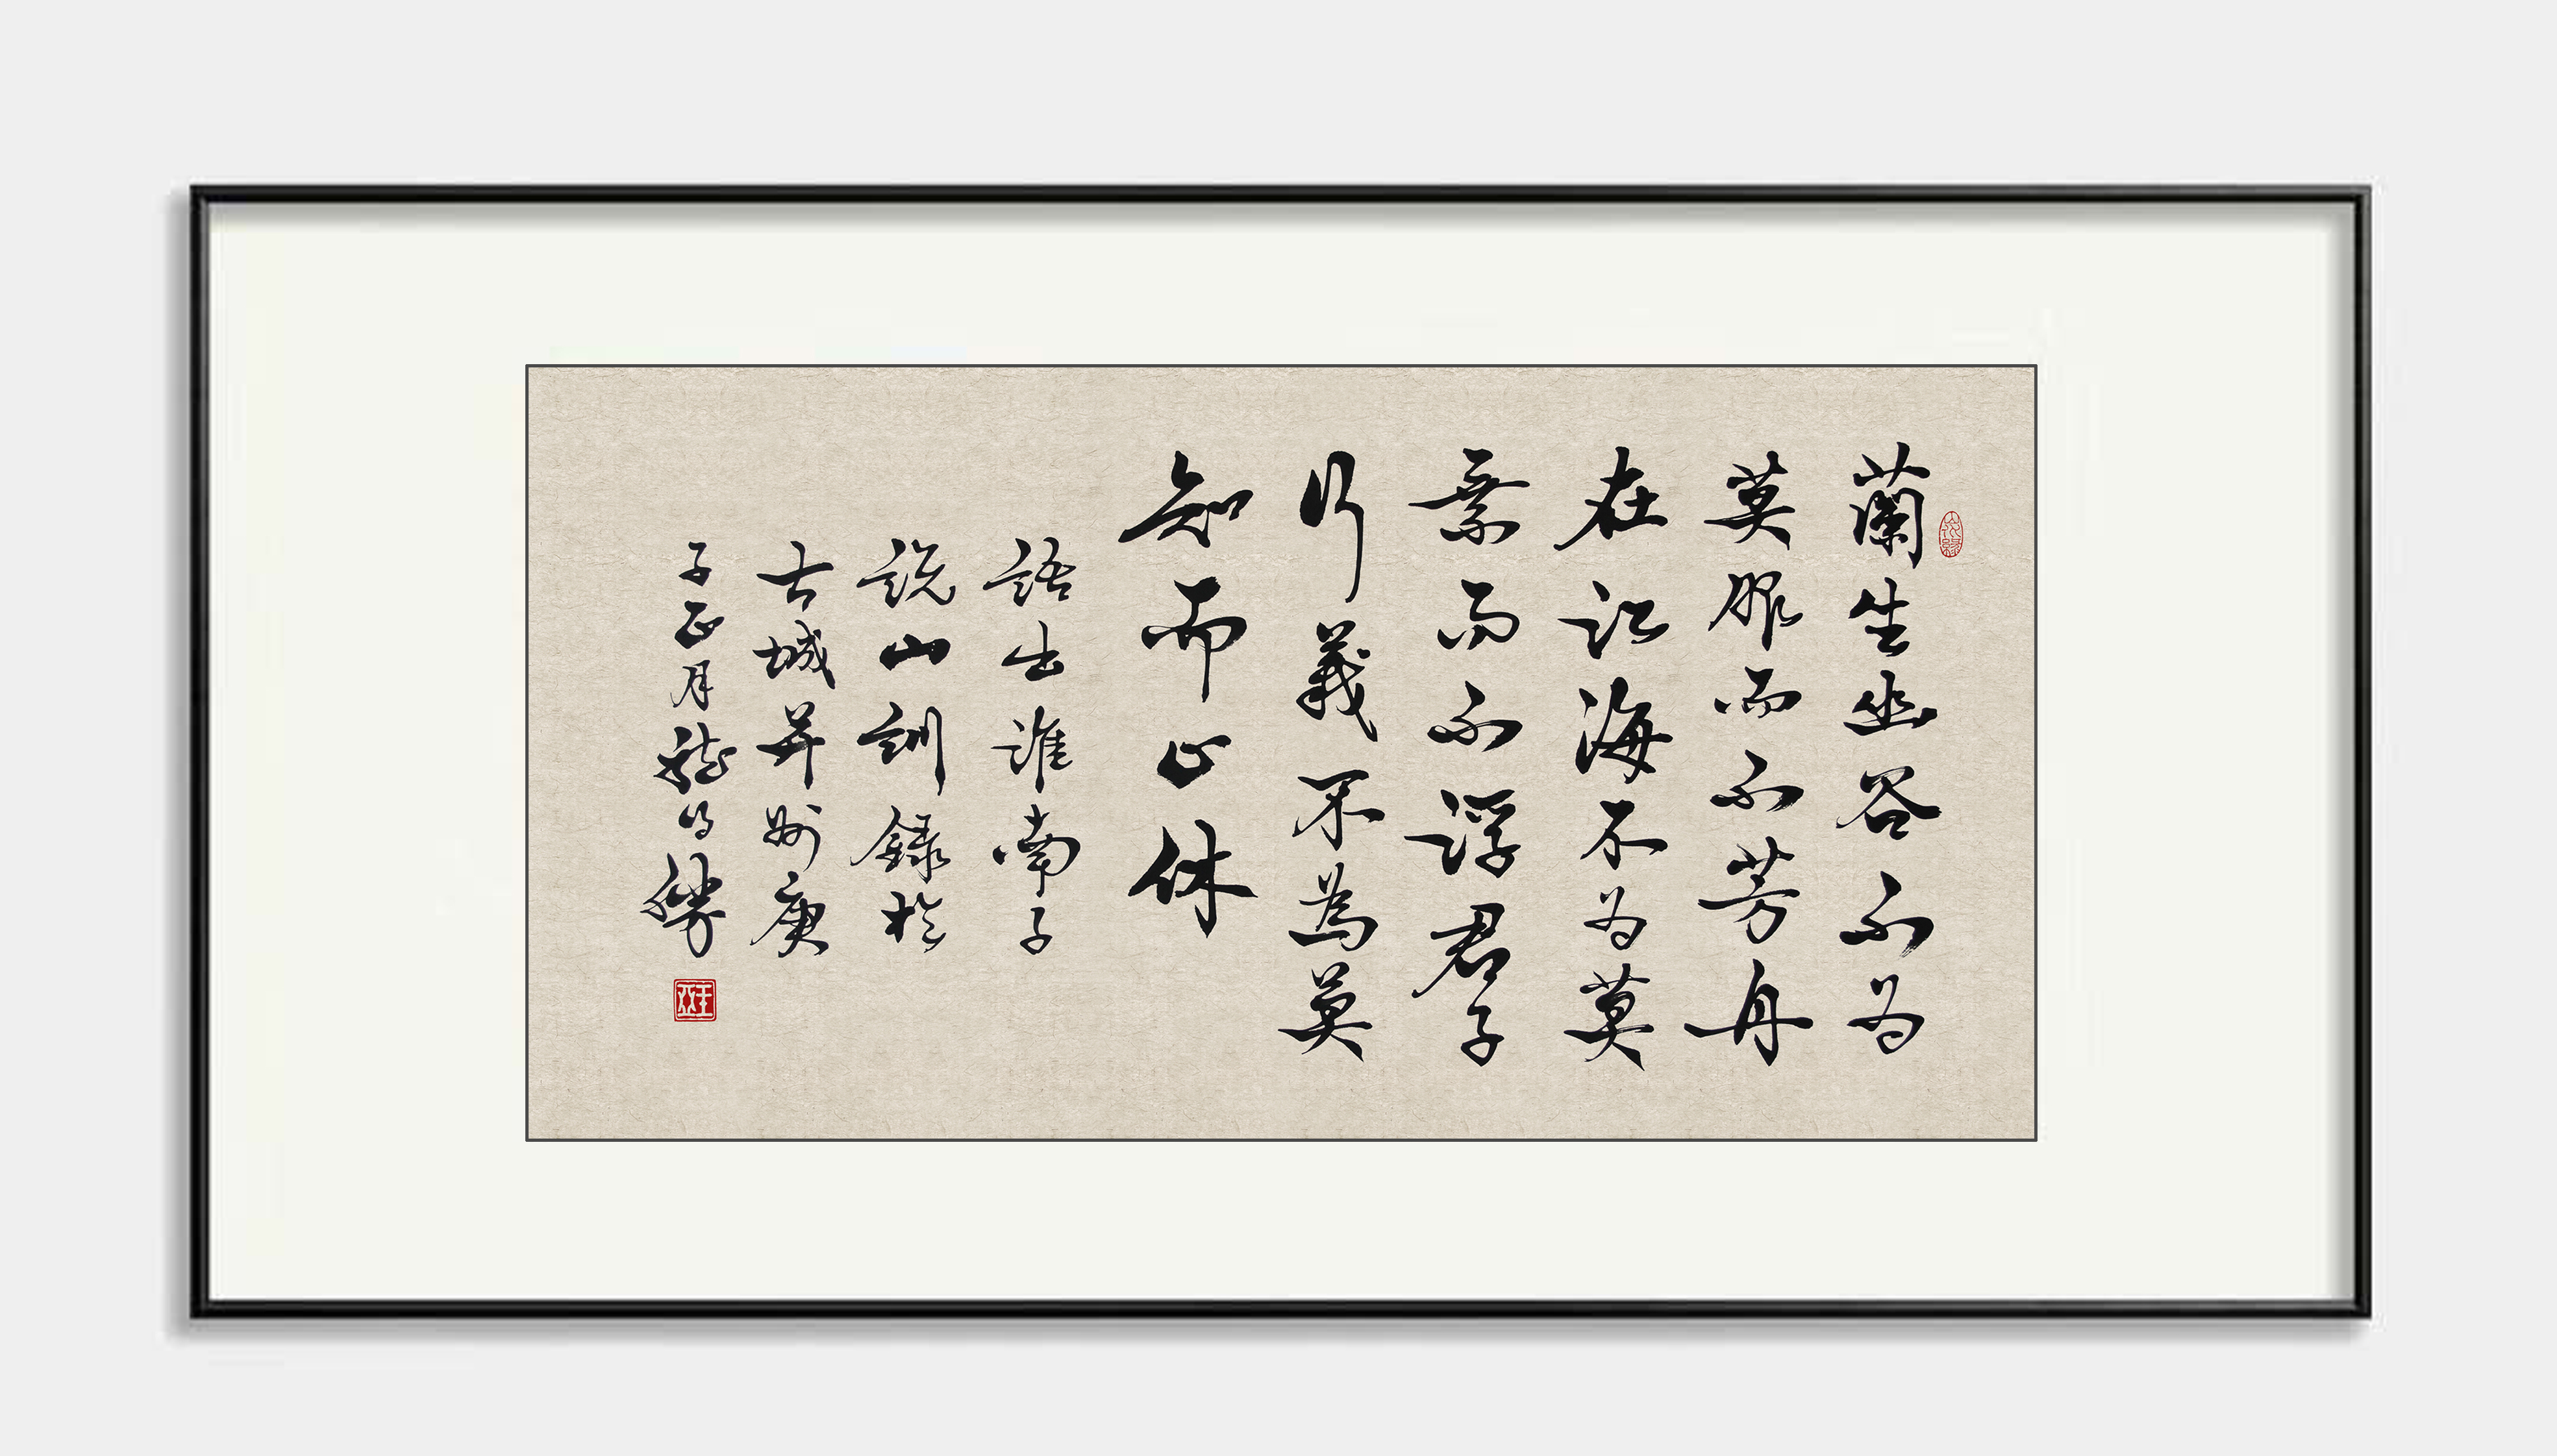 蘭生幽谷不为
莫服而不芳舟
在江海不为莫
乘而不浮君子
行義不為莫
知而止休
語出淮南子
説山訓錄於
古城并州庚
子正月
王亞